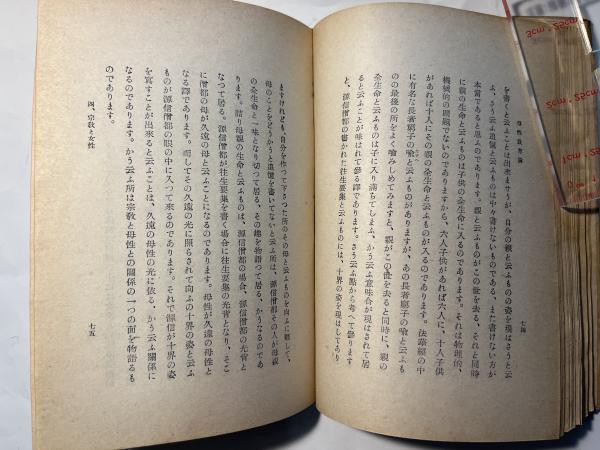 母性教育論
七四
を書くと云ふことは出来ませうが、自分の親と云ふものの姿を現はさうと云
ふ、さう云ふ追憶と云ふものは中々書けないものである、また書けない方が
本當であると思ふのであります。親と云ふものがこの世を去る、それと同時
に親の生命と云ふものは子供の全生命に入るのであります。それは物理的、
機械的の問題でないのでありますから、六人子供があれば六人に、十人子供
があれば十人にその親の全生命と云ふものが入るのであります。法華經の中
に有名な長者窮子の喩と云ふものがありますが、あの長者窮子の喩と云ふも
のの最後の所をよく喩みしめてみますと、親がこの世を去ると同時に、親の
全生命と云ふものは子に入り満ちてしまふ、かう云ふ意味合が現はされて居
ると云ふことが味はれて參る譯であります。さう云ふ點から考へて參ります
と、源信僧都の書かれた往生要集と云ふものには、十界の姿を現はしてあり
ますけれども、自分を作つて下さつた所のその母と云ふものを向ふに廻して、
母のことをどうかうと追憶を書いてないと云ふ所は、源信僧都その人が母親
の全生命と一味となり切つて居る、その趣を物語つて居る、かうなるのであ
ります。詰り母親の生命と云ふものは、源信僧都の場合、源信僧都の光背と
なつて居る。源信僧都が往生要集を書く場合に往生要集の光背となり、そこ
に僧都の母が久遠の母と云ふことになるのであります。母性が久遠の母性と
なる譯であります。而してその久遠の光に照らされて向ふの十界の姿と云ふ
ものが源信僧都の眼の中に入つて來るのであります。それで源信が十界の姿
を寫すことが出来ると云ふことは、久遠の母性の光に依る、かう云ふ關係に
なるのであります。かう云ふ所は宗教と母性との關係の一つの面を物語るも
のであります。
四、宗教と女性
七五